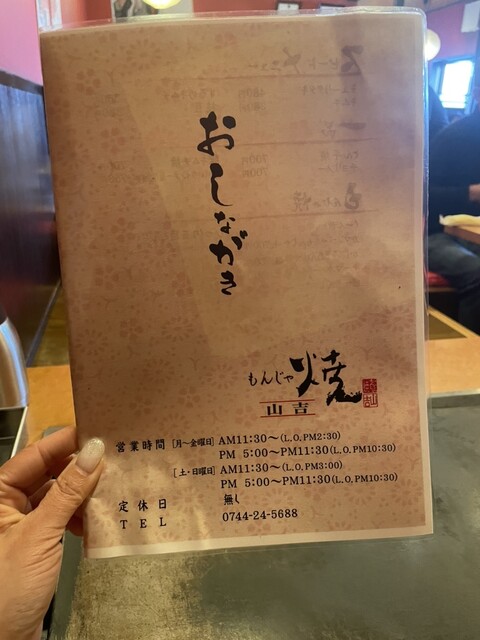 おしながき
もんじゃ焼
山吉
営業時間 [月〜金曜日] AM11:30〜(L.O.PM2:30)
PM 5:00〜PM11:30(L.O.PM10:30)
[土・日曜日] AM11:30〜(L.O.PM3:00)
PM 5:00〜PM11:30(L.O.PM10:30)
定休日 無し
TEL 0744-24-5688